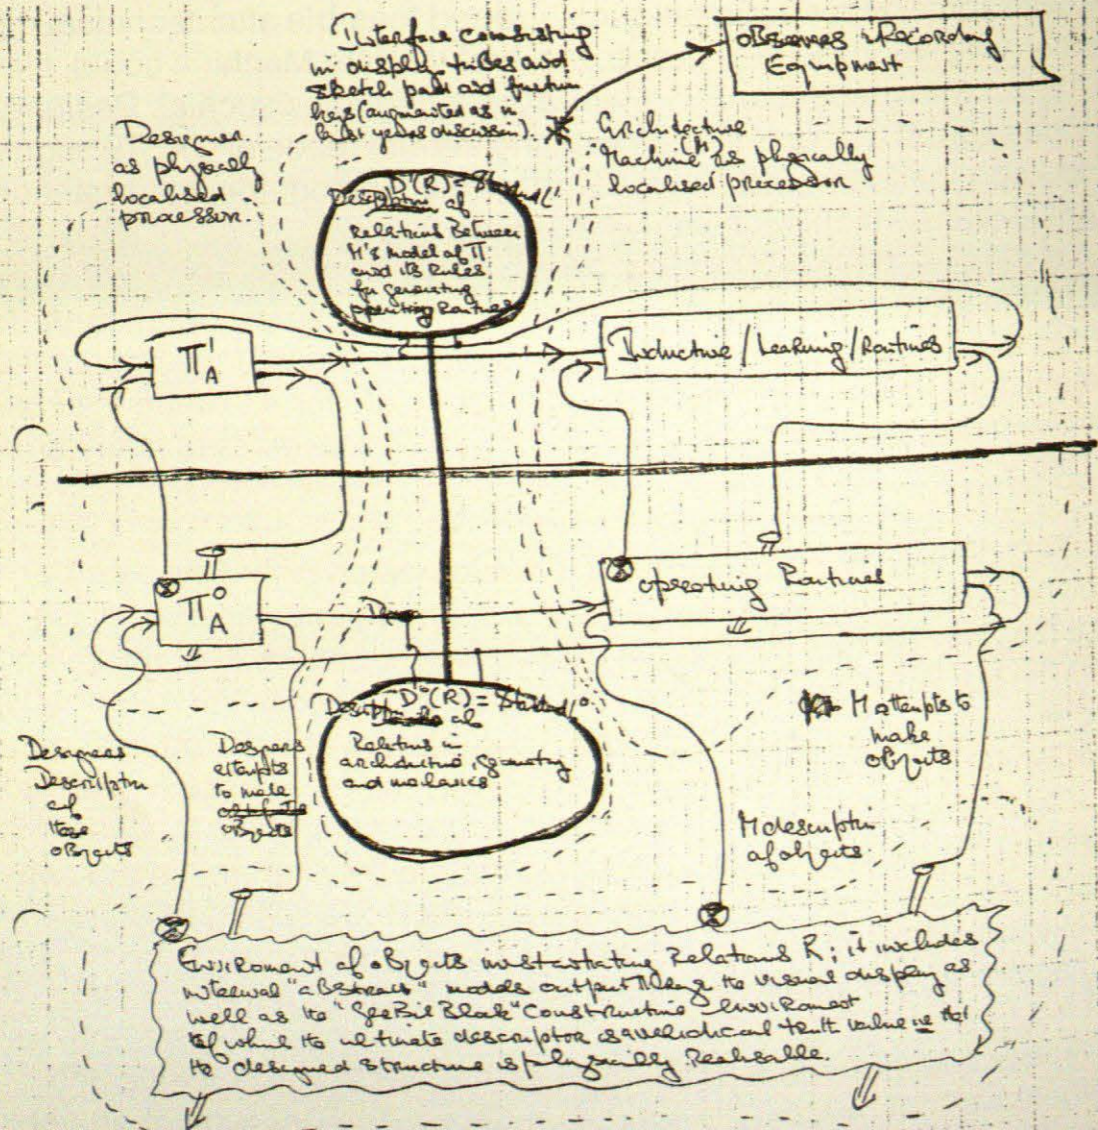 Interface consisting
in display tubes and
sketch pads and function
keys (augmented as in
last years discussion).
Observers & Recording
Equipment
Designer
as physically
localised
processor.
Architecture
Machine (M) as physically
localised processor.
D'(R) =
Description of
Relations Between
M's model of Π
and its Rules
for generating
operating Routines
Π¹A
Inductive / Learning / Routines
Π⁰A
Operating Routines
D⁰(R) =
Description of
Relations in
architecture, geometry
and mechanics
Designers
Description
of
these
objects
Designers
attempts
to make
objects
M attempts to
make
objects
M description
of objects
Enviroment of objects instantiating Relations R; it includes
internal "abstract" models output along the visual display as
well as the "Gerbil Block" Constructive enviroment
of which the ultimate descriptor is a veridical truth value ie that
the designed structure is physically Realisable.